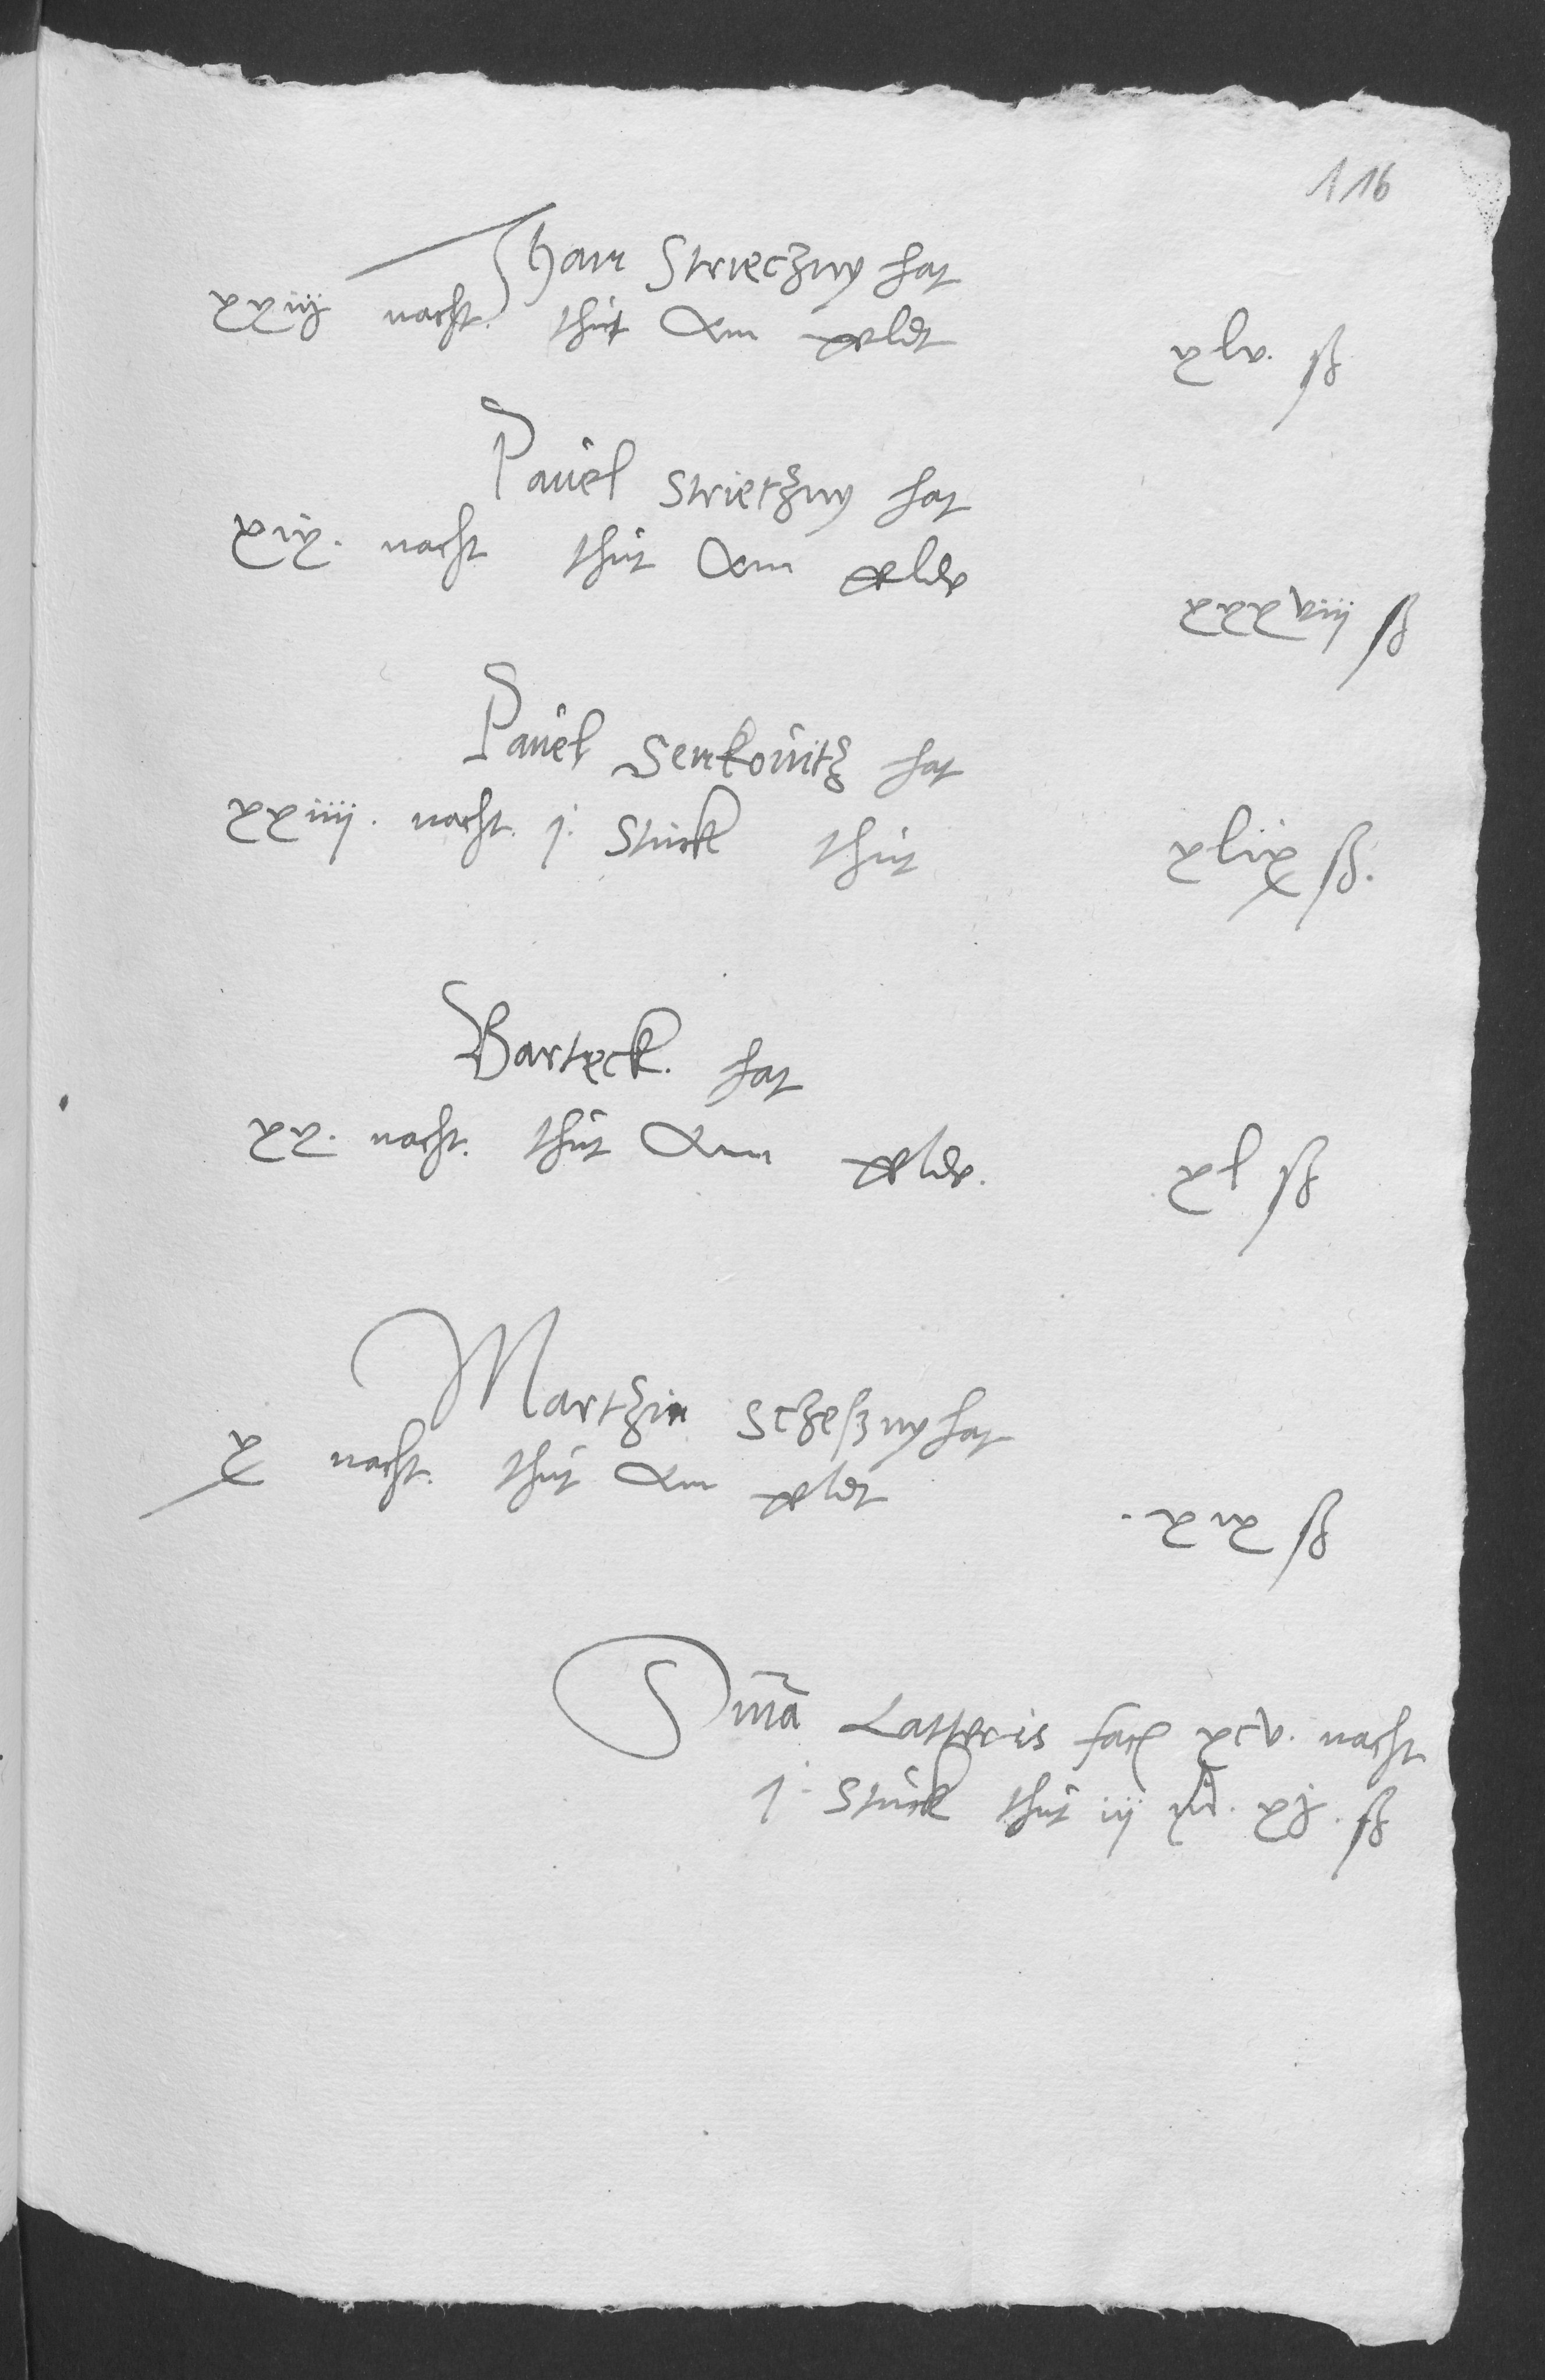 116
Jhan Strieczny hat
xxiij nacht. thut Am gelt xlv. ß
Pauel Strietzny hat
xix. nacht thut Am gelde
xxxviij ß
Pauel Senkouitz hat
xxiiij. nacht. j. Stuck thut xlix ß.
Barteck. hat
xx. nacht. thut Am gelde. xl ß
Martzin Sczeszny hat
x nacht. thut Am gelt
xix ß
Suma Latteris facit xcv. nacht
j. Stuck thut iij m. xj. ß